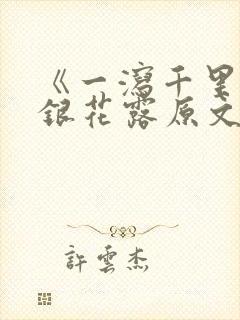 《一瀉千里
銀花露原文
許雲杰